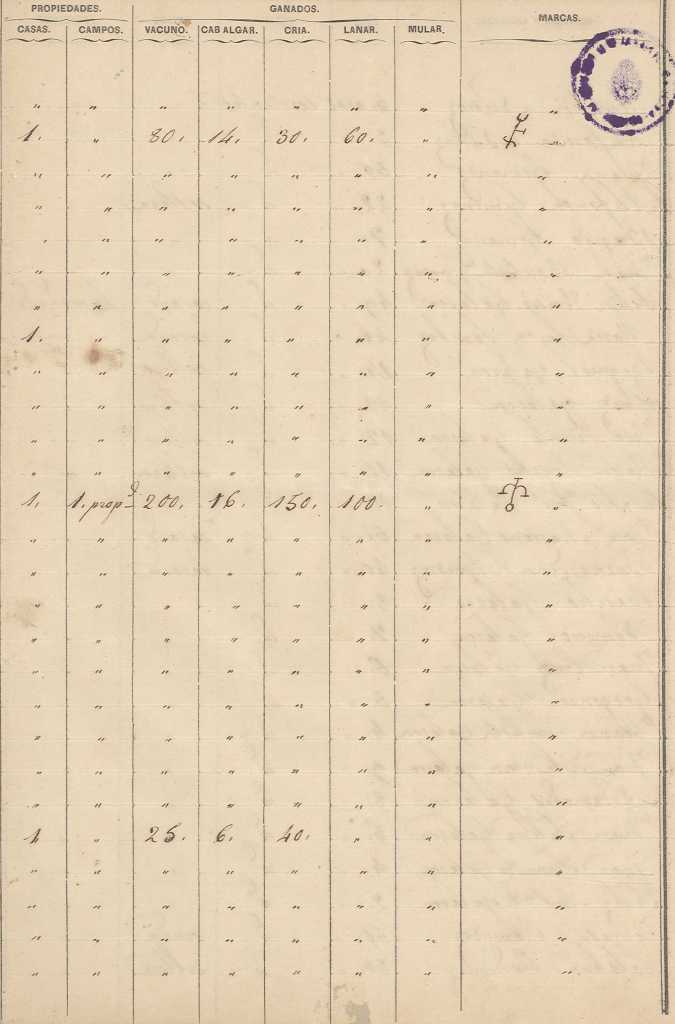 PROPIEDADES. GANADOS. MARCAS.
CASAS. CAMPOS. VACUNO. CABALGAR. CRIA. LANAR. MULAR.
" " " " " " " "
1. " 80. 14. 30. 60. " "
" " " " " " " "
" " " " " " " "
" " " " " " " "
" " " " " " " "
" " " " " " " "
1. " " " " " " "
" " " " " " " "
" " " " " " " "
" " " " " " " "
" " " " " " " "
1. 1. propd 200. 16. 150. 100. " "
" " " " " " " "
" " " " " " " "
" " " " " " " "
" " " " " " " "
" " " " " " " "
" " " " " " " "
" " " " " " " "
" " " " " " " "
" " " " " " " "
1 " 25. 6. 40. " " "
" " " " " " " "
" " " " " " " "
" " " " " " " "
" " " " " " " "